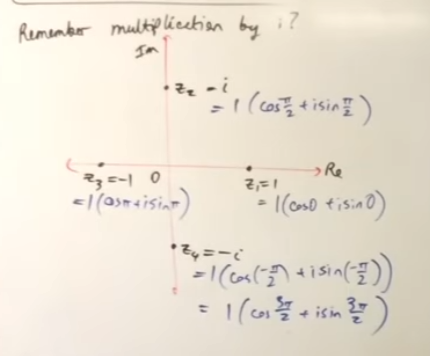 Remember multiplication by i?
Im
z₂ = i
= 1 (cos π/2 + i sin π/2)
Re
z₃ = -1 0
z₁ = 1
= 1 (cos π + i sin π)
= 1 (cos 0 + i sin 0)
z₄ = -i
= 1 (cos (-π/2) + i sin (-π/2))
= 1 (cos 3π/2 + i sin 3π/2)